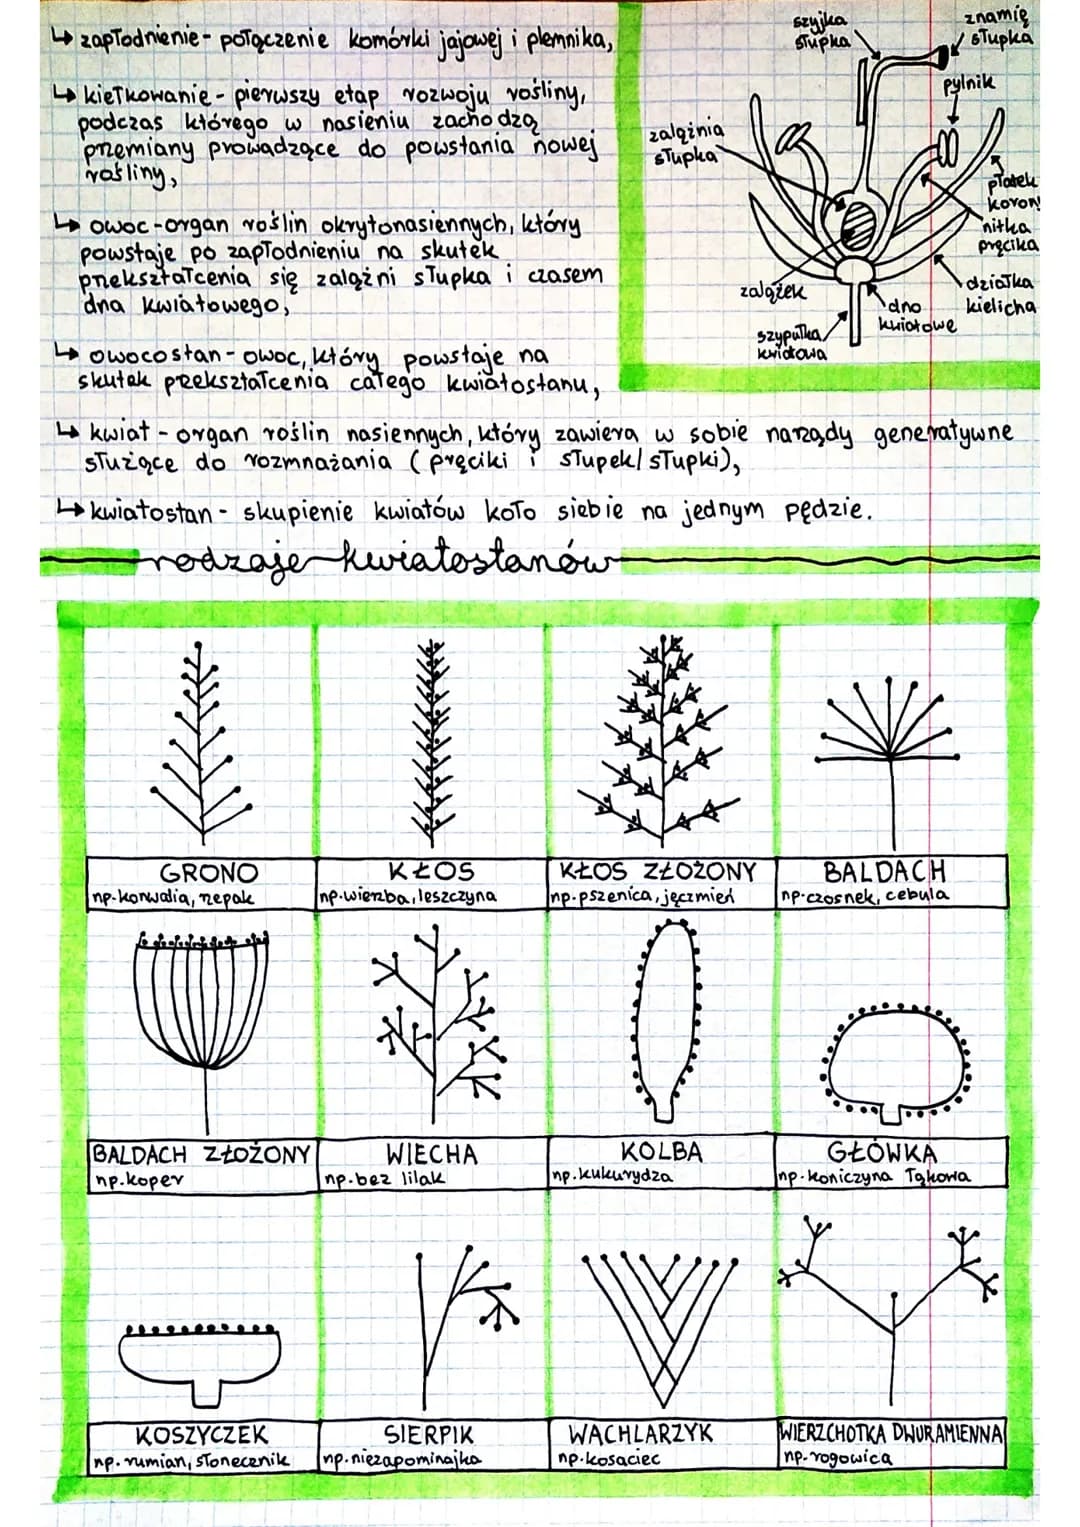 ↳ zapłodnienie - połączenie komórki jajowej i plemnika,
↳ kiełkowanie - pierwszy etap rozwoju rośliny,
podczas którego w nasieniu zachodzą
przemiany prowadzące do powstania nowej
rośliny,
↳ owoc - organ roślin okrytonasiennych, który
powstaje po zapłodnieniu na skutek
przekształcenia się zalążni słupka i czasem
dna kwiatowego,
↳ owocostan - owoc, który powstaje na
skutek przekształcenia całego kwiatostanu,
szyjka
słupka
znamię
słupka
pylnik
zalążnia
słupka
płatek
korony
nitka
pręcika
działka
kielicha
zalążek
dno
kwiatowe
szypułka
kwiatowa
↳ kwiat - organ roślin nasiennych, który zawiera w sobie narządy generatywne
służące do rozmnażania (pręciki i słupek/słupki),
↳ kwiatostan - skupienie kwiatów koło siebie na jednym pędzie.
rodzaje kwiatostanów
GRONO
np. konwalia, rzepak
KŁOS
np. wierzba, leszczyna
KŁOS ZŁOŻONY
np. pszenica, jęczmień
BALDACH
np. czosnek, cebula
BALDACH ZŁOŻONY
np. koper
WIECHA
np. bez lilak
KOLBA
np. kukurydza
GŁÓWKA
np. koniczyna łąkowa
KOSZYCZEK
np. rumian, słonecznik
SIERPIK
np. niezapominajka
WACHLARZYK
np. kosaciec
WIERZCHOTKA DWURAMIENNA
np. rogowica